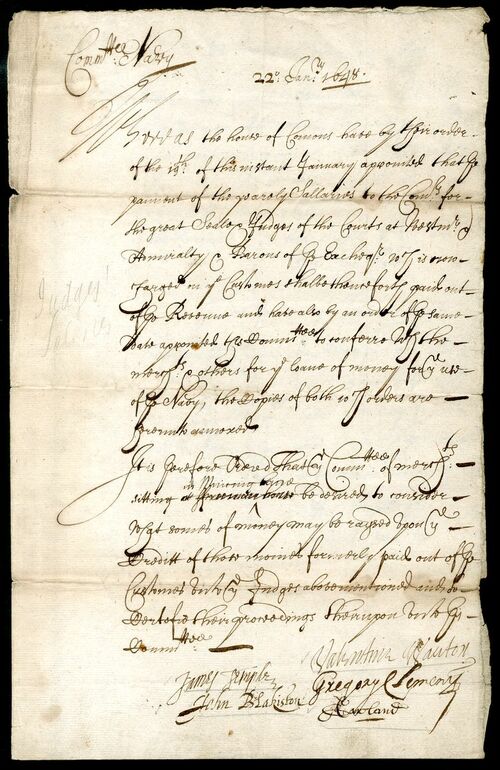 Comm:ttee Navy
22o. Jan:ry 1648.
Whereas the house of Comons have by their order
of the 19th of this instant January appointed that ye
paiment of the yearely Sallaries to the Com:rs for
the great Seale, Judges of the Courts at Westm:r,
Admiralty & Barons of ye Excheq:r wch is now
charged in ye Customes shalbe thenceforth paid out
of ye Revenue and have also by an order of ye same
date appointed this Committee to conferre wth the
merch:ts & others for ye loane of money for ye use
of ye Navy, the Copies of both wch orders are
herewith annexed
It is therefore Ordered That ye Comm:ttee of merch:ts
in Mincing lane
sitting at be desired to consider
what somes of money may be raysed upon ye
Creditt of those monies formerly paid out of ye
Customes unto ye Judges abovementioned and to
Certefie their proceedings thereupon unto this
Committee
Valentine Wauton
James Temple Gregory Clement
John Blakiston
Judges'
Salaries